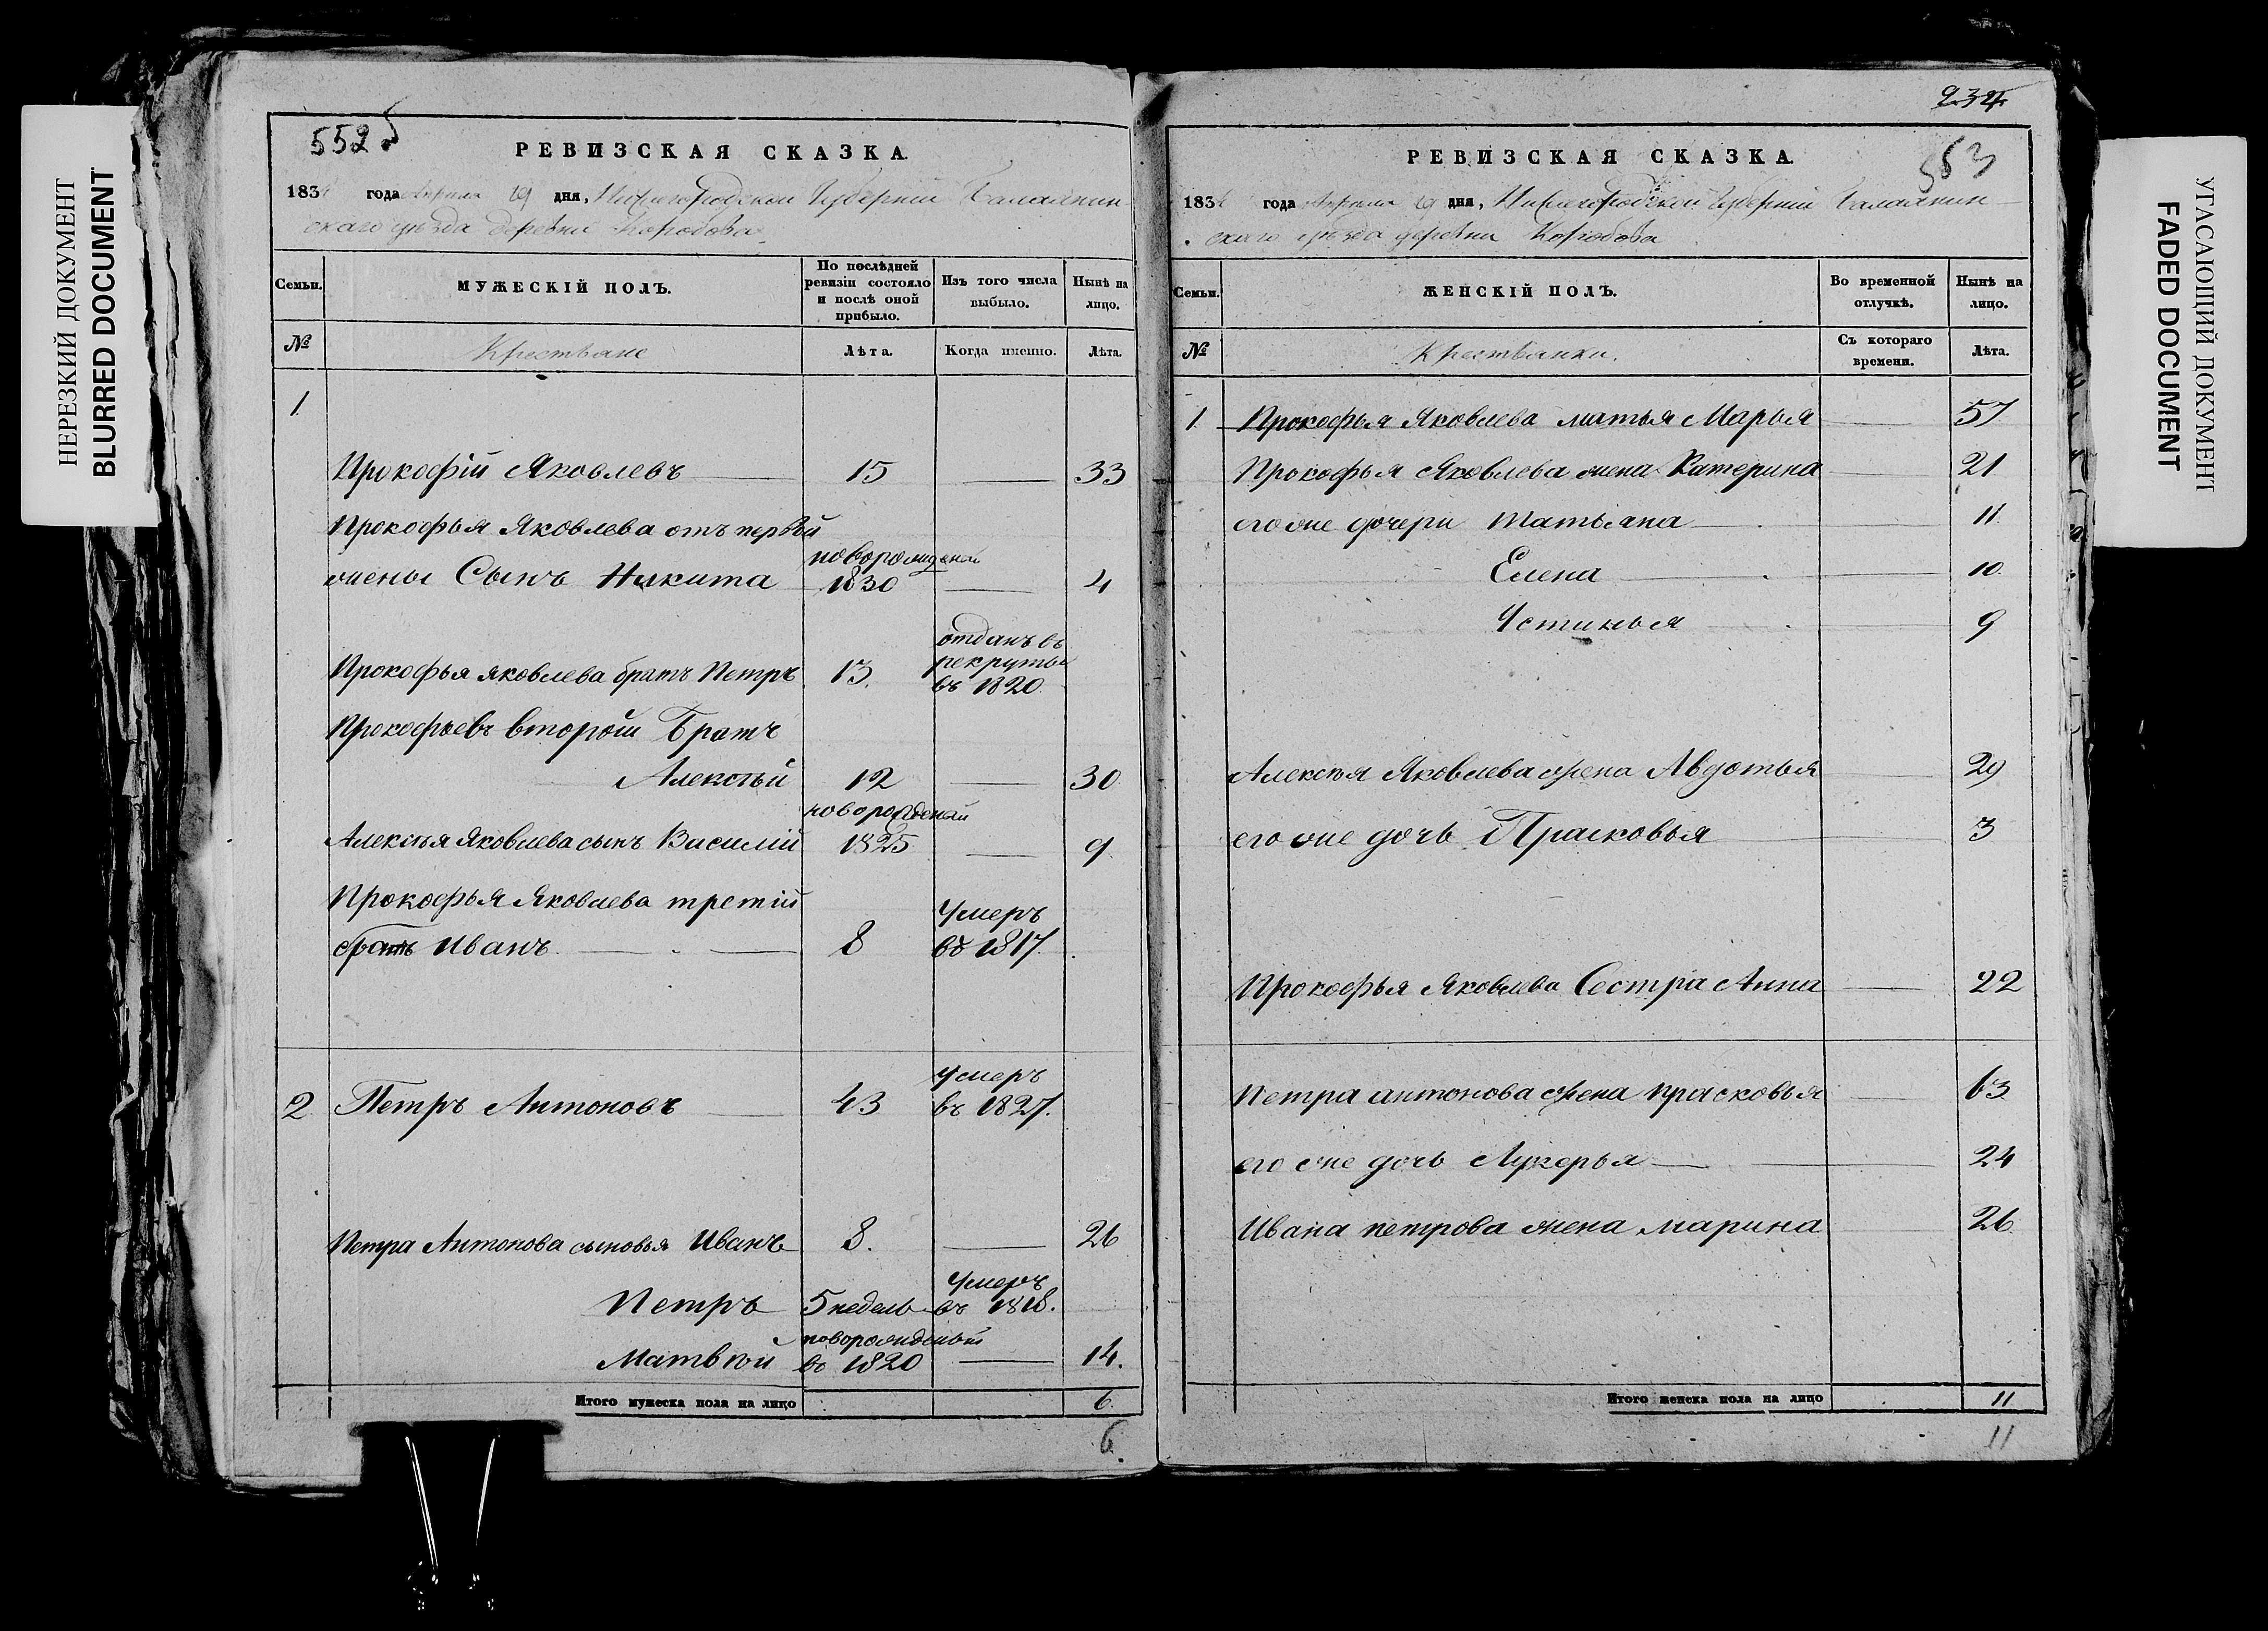 НЕРЕЗКИЙ ДОКУМЕНТ
BLURRED DOCUMENT
552 б
РЕВИЗСКАЯ СКАЗКА.
183 года Апреля 19 дня, Нижегородской Губернии Балахнин
скаго уѣзда деревни Коробова
Семьи.
МУЖЕСКІЙ ПОЛЪ.
По послѣдней
ревизіи состояло
и послѣ оной
прибыло.
Изъ того числа
выбыло.
Нынѣ на
лицо.
№
Крестьяне
Лѣта.
Когда именно.
Лѣта.
1
Прокофій Яковлевъ 15 33
Прокофья Яковлева отъ первой
жены Сынъ Никита новорожденой 1830 4
Прокофья яковлева братъ Петръ 13. отданъ въ
рекруты
въ 1820.
Прокофьевъ второй Братъ
Алексѣй 12 30
Алексѣя Яковлева сынъ Василій новорожденой 1825 9
Прокофья Яковлева третій
братъ Иванъ 8 Умеръ
въ 1817.
2 Петръ Антоновъ 43 умеръ
въ 1827.
Петра Антонова сыновья Иванъ 8. 26
Петръ 5 недель Умеръ
въ 1818.
Матвѣй новорожденый
въ 1820 14.
Итого мужеска пола на лицо 6.
6.
234
553
РЕВИЗСКАЯ СКАЗКА.
183 года Апреля 19 дня, Нижегородской Губернии Балахнин
скаго уѣзда деревни Коробова
Семьи.
ЖЕНСКІЙ ПОЛЪ.
Во временной
отлучкѣ.
Нынѣ на
лицо.
№
Крестьянки.
Съ котораго
времени.
Лѣта.
1. Прокофья Яковлева матья Марья 57
Прокофья Яковлева жена Катерина 21
его же дочери Татьяна 11.
Елена 10.
Устинья 9
Алексѣя Яковлева жена Авдотья 29
его же дочь Прасковья 3
Прокофья Яковлева Сестра Анна 22
Петра антонова жена прасковья 63
его же дочь Лукерья 24
Ивана петрова жена марина 26.
Итого женска пола на лицо 11
11
УГАСАЮЩИЙ ДОКУМЕНТ
FADED DOCUMENT